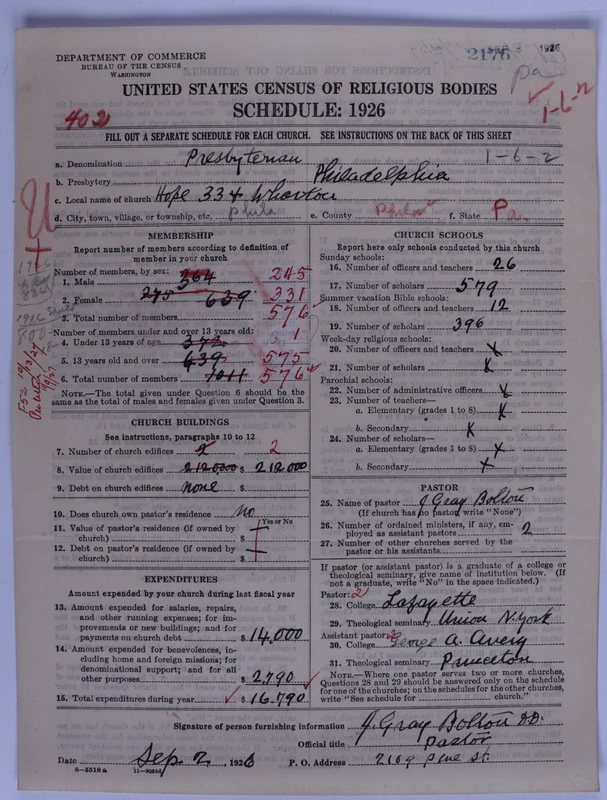 DEPARTMENT OF COMMERCE
BUREAU OF THE CENSUS
WASHINGTON
2176
1926
Pa
UNITED STATES CENSUS OF RELIGIOUS BODIES
SCHEDULE: 1926
402
1-6-2
FILL OUT A SEPARATE SCHEDULE FOR EACH CHURCH. SEE INSTRUCTIONS ON THE BACK OF THIS SHEET
a. Denomination Presbyterian 1-6-2
b. Presbytery Philadelphia
c. Local name of church Hope 33 & Wharton
d. City, town, village, or township, etc. Phila e. County Phila f. State Pa.
MEMBERSHIP
Report number of members according to definition of member in your church
Number of members, by sex:
1. Male 364 245
2. Female 275 639 331
3. Total number of members 576
Number of members under and over 13 years old:
4. Under 13 years of age 372 1
5. 13 years old and over 639 575
6. Total number of members 1011 576
NOTE.—The total given under Question 6 should be the same as the total of males and females given under Question 3.
CHURCH BUILDINGS
See instructions, paragraphs 10 to 12
7. Number of church edifices 2 2
8. Value of church edifices 212000 $ 212000
9. Debt on church edifices none $
10. Does church own pastor's residence no
Yes or No
11. Value of pastor's residence (if owned by church) $
12. Debt on pastor's residence (if owned by church) $
EXPENDITURES
Amount expended by your church during last fiscal year
13. Amount expended for salaries, repairs, and other running expenses; for improvements or new buildings; and for payments on church debt $ 14,000
14. Amount expended for benevolences, including home and foreign missions; for denominational support; and for all other purposes $ 2,790
15. Total expenditures during year $ 16,790
CHURCH SCHOOLS
Report here only schools conducted by this church
Sunday schools:
16. Number of officers and teachers 26
17. Number of scholars 579
Summer vacation Bible schools:
18. Number of officers and teachers 12
19. Number of scholars 396
Week-day religious schools:
20. Number of officers and teachers x
21. Number of scholars x
Parochial schools:
22. Number of administrative officers x
23. Number of teachers—
a. Elementary (grades 1 to 8) x
b. Secondary x
24. Number of scholars—
a. Elementary (grades 1 to 8) x
b. Secondary x
PASTOR
25. Name of pastor J Gray Bolton
(If church has no pastor, write "None")
26. Number of ordained ministers, if any, employed as assistant pastors 2
27. Number of other churches served by the pastor or his assistants
If pastor (or assistant pastor) is a graduate of a college or theological seminary, give name of institution below. (If not a graduate, write "No" in the space indicated.)
Pastor: 2
28. College Lafayette
29. Theological seminary Union N. York
Assistant pastor:
30. College George A. Avery
31. Theological seminary Princeton
NOTE.—Where one pastor serves two or more churches, Questions 28 and 29 should be answered only on the schedule for one of the churches; on the schedules for the other churches, write "See schedule for church."
Signature of person furnishing information J. Gray Bolton DD.
Official title Pastor
Date Sep. 2, 1926 P. O. Address 2109 Pine St.
8-5518 a